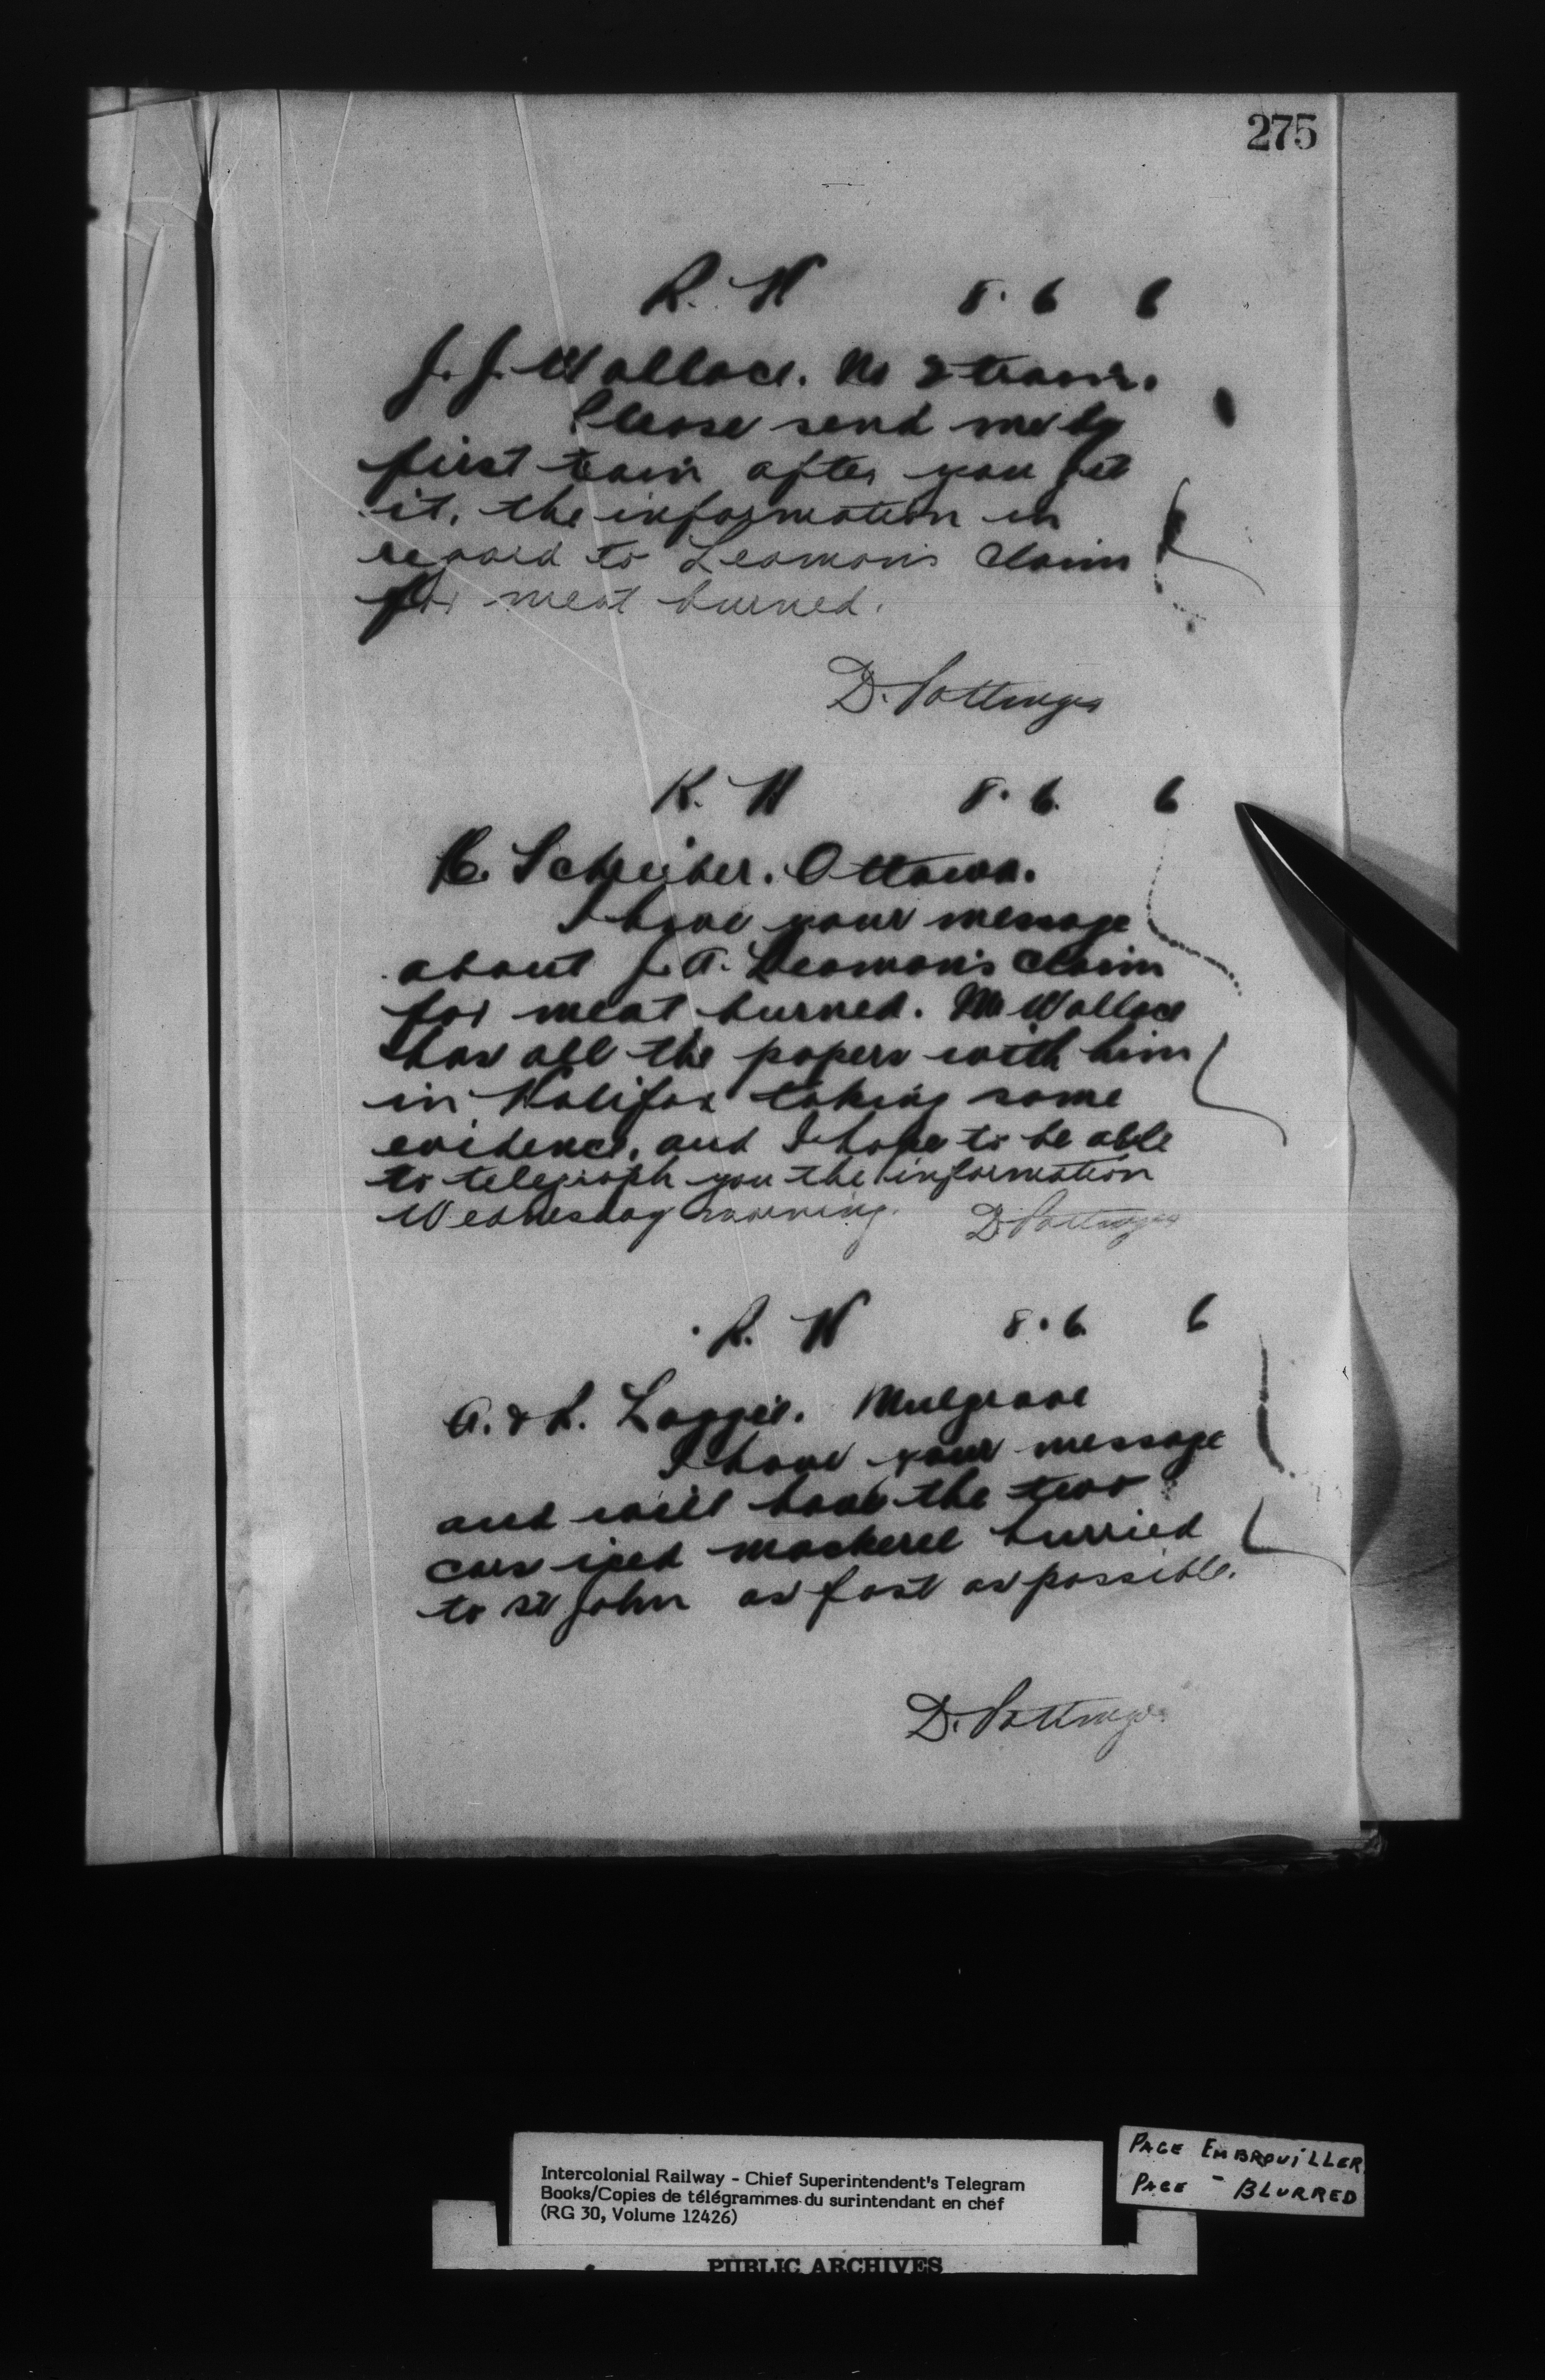 275
R. H 8. 6 6
J. J. Wallace. No 2 train.
Please send me by
first train after you get
it, the information in
regard to Leaman's claim
for meat burned.
D. Pottinger
R. H 8. 6. 6
C. Schreiber. Ottawa.
I have your message
about J. A. Leaman's claim
for meat burned. Mr Wallace
has all the papers with him
in Halifax taking some
evidence, and I hope to be able
to telegraph you the information
Wednesday morning. D. Pottinger
R. H 8. 6. 6
A. & R. Loggie. Mulgrave
I have your message
and will have the two
cars iced mackerel hurried
to St John as fast as possible.
D. Pottinger
Intercolonial Railway - Chief Superintendent's Telegram
Books/Copies de télégrammes du surintendant en chef
(RG 30, Volume 12426)
PAGE EMBROUILLER
PAGE - BLURRED
PUBLIC ARCHIVES